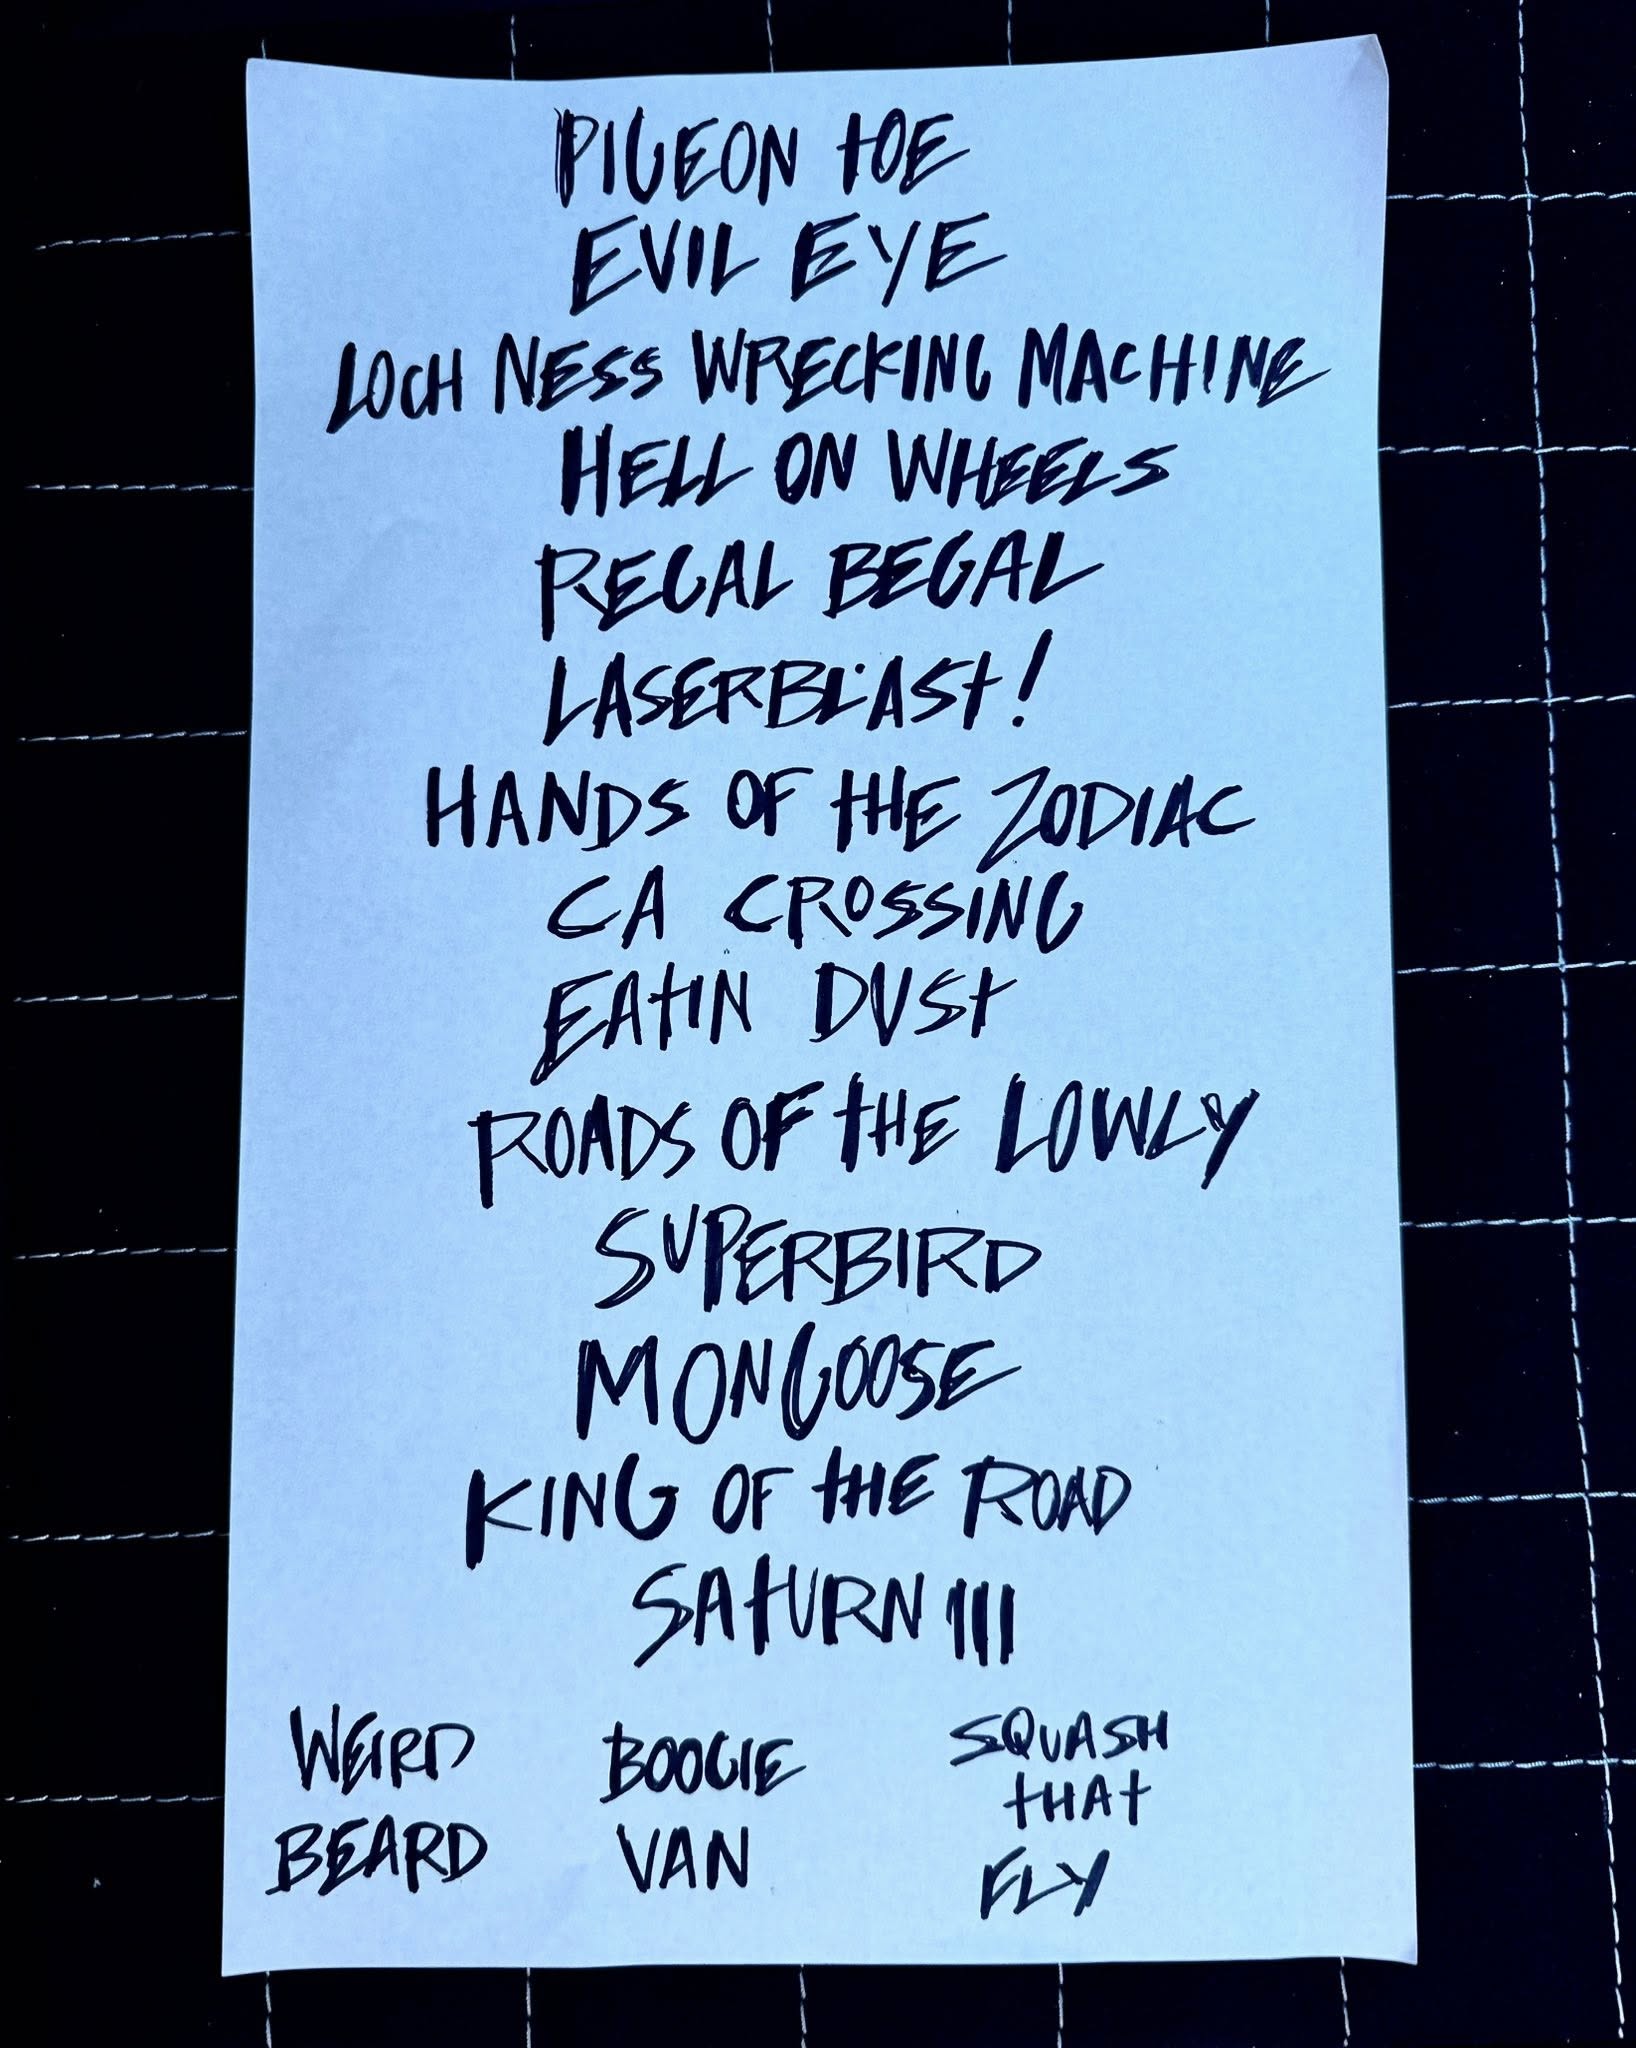 PIGEON TOE
EVIL EYE
LOCH NESS WRECKING MACHINE
HELL ON WHEELS
REGAL BEGAL
LASERBLAST!
HANDS OF THE ZODIAC
CA CROSSING
EATIN DUST
ROADS OF THE LOWLY
SUPERBIRD
MONGOOSE
KING OF THE ROAD
SATURN III
WEIRD
BEARD
BOOGIE
VAN
SQUASH
THAT
FLY